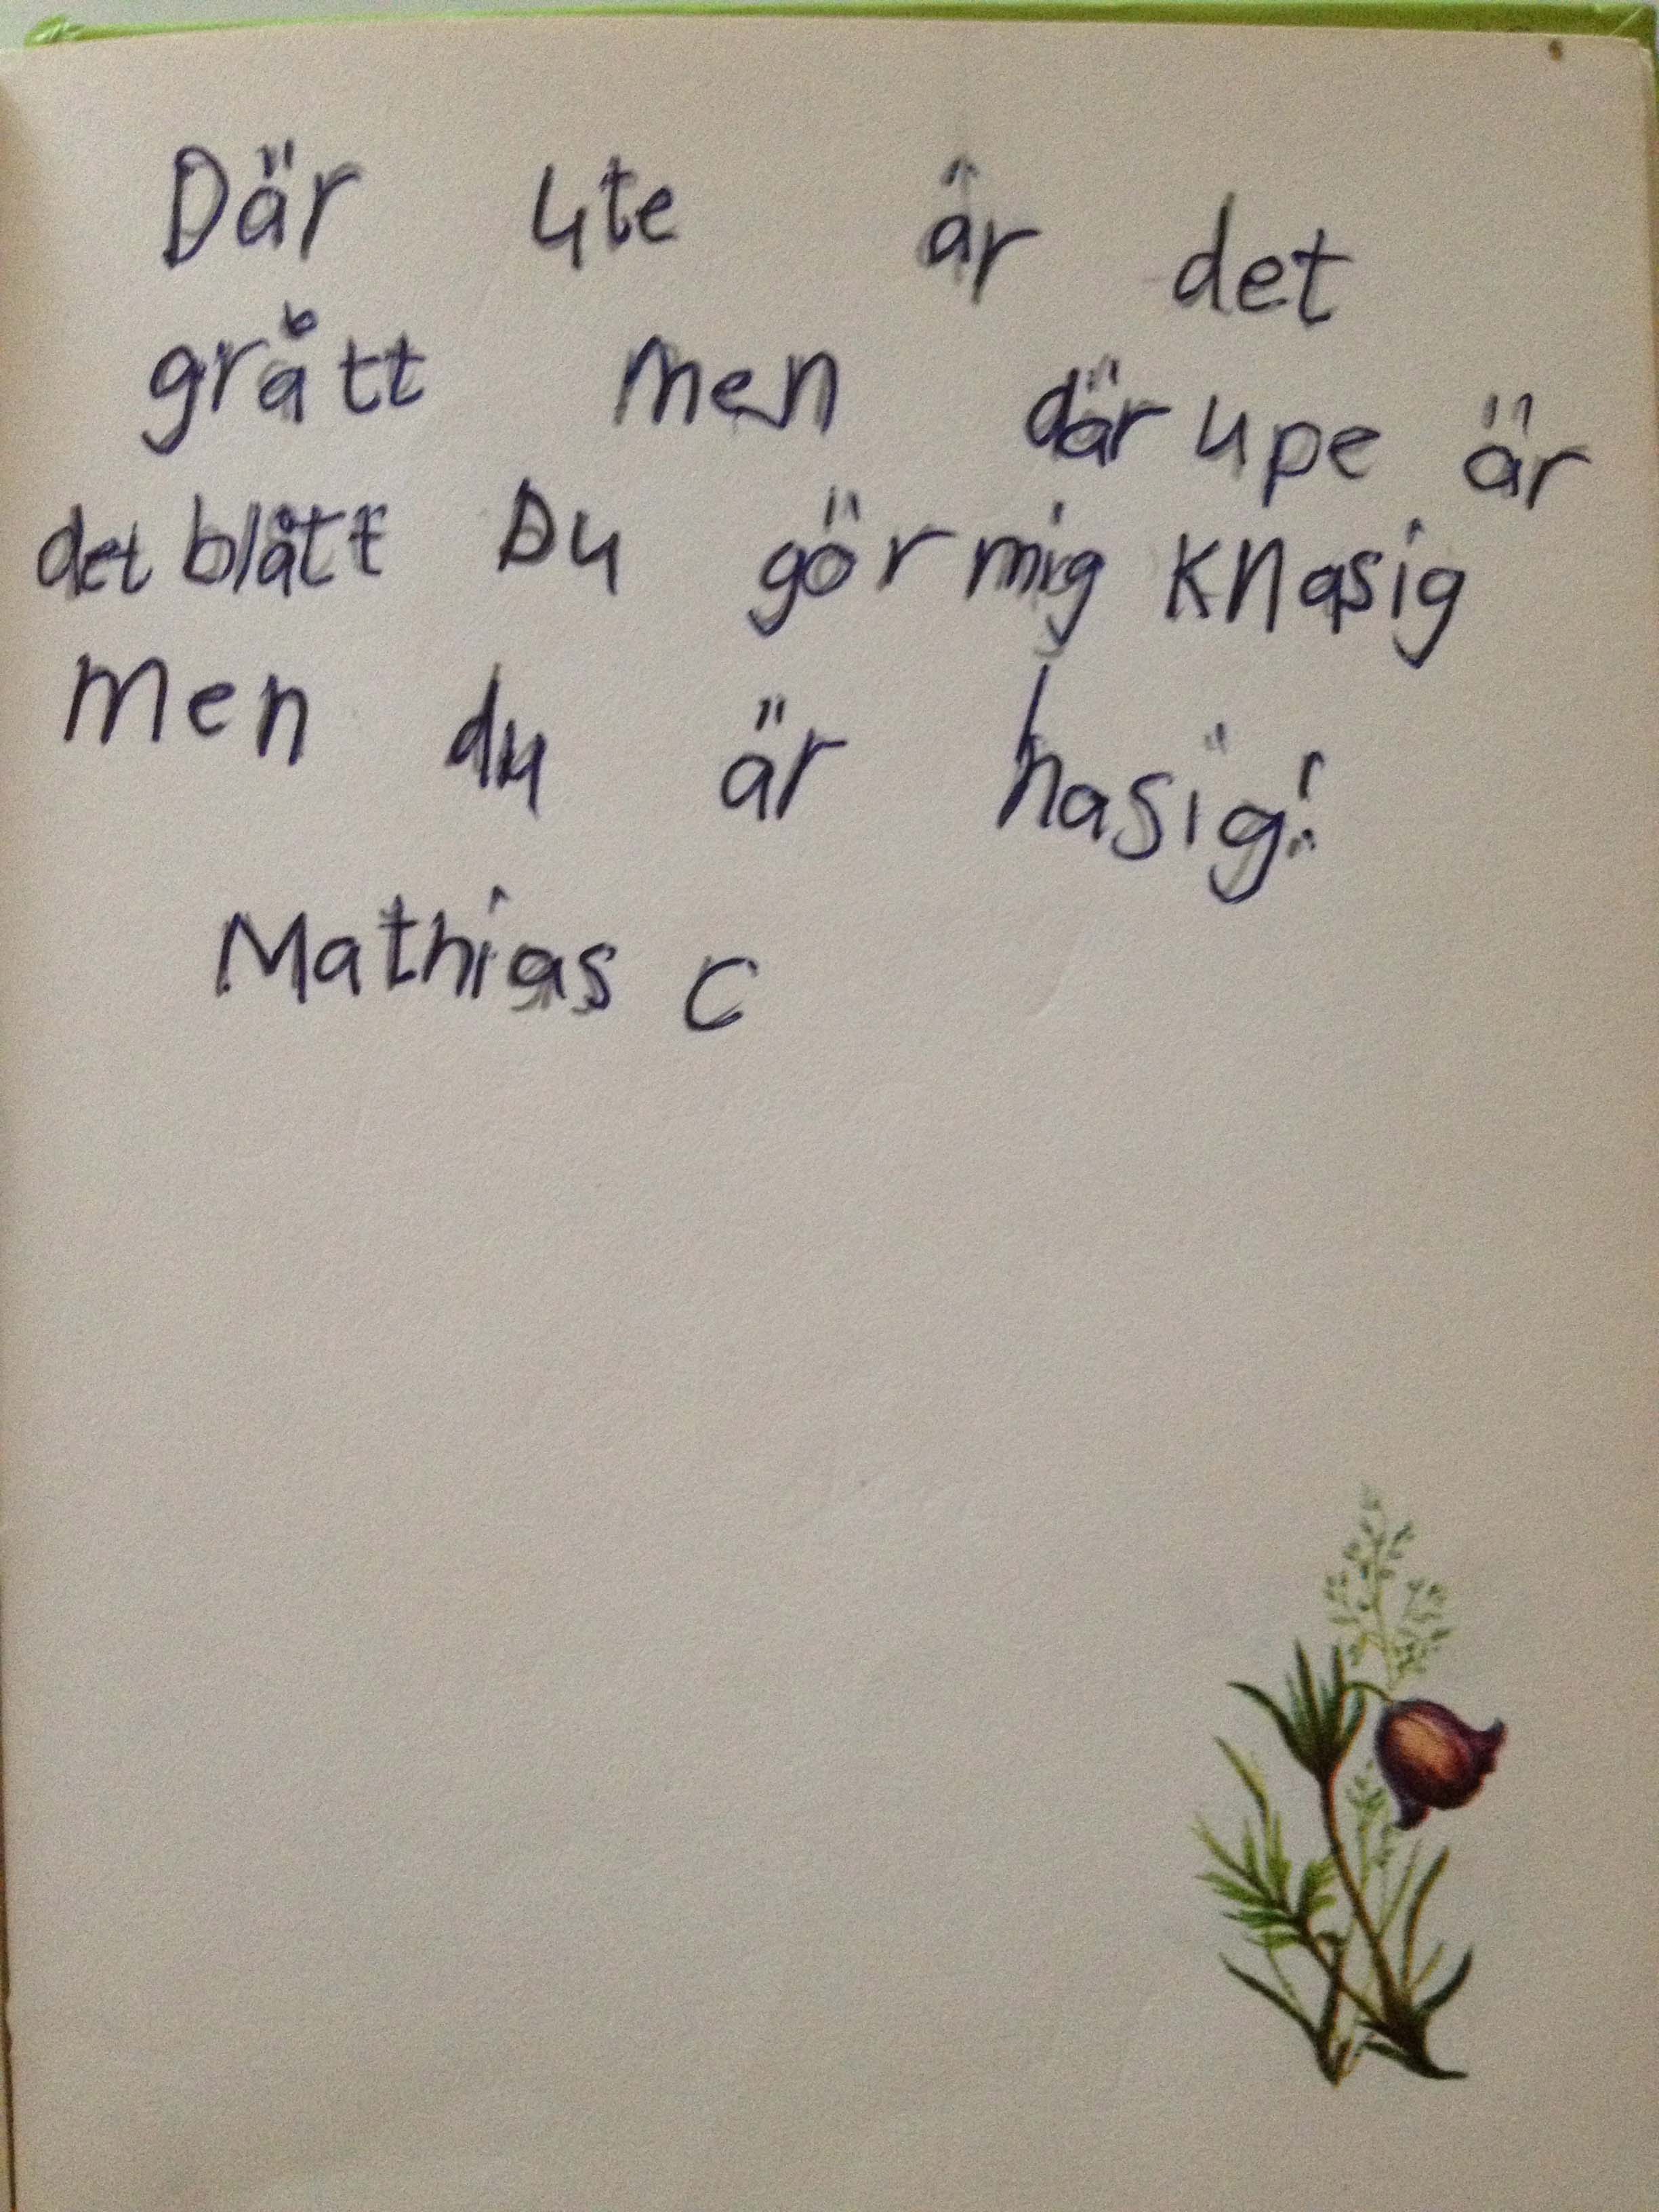 Där ute är det
grått men där upe är
det blått Du gör mig knasig
men du är hasig!
Mathias C